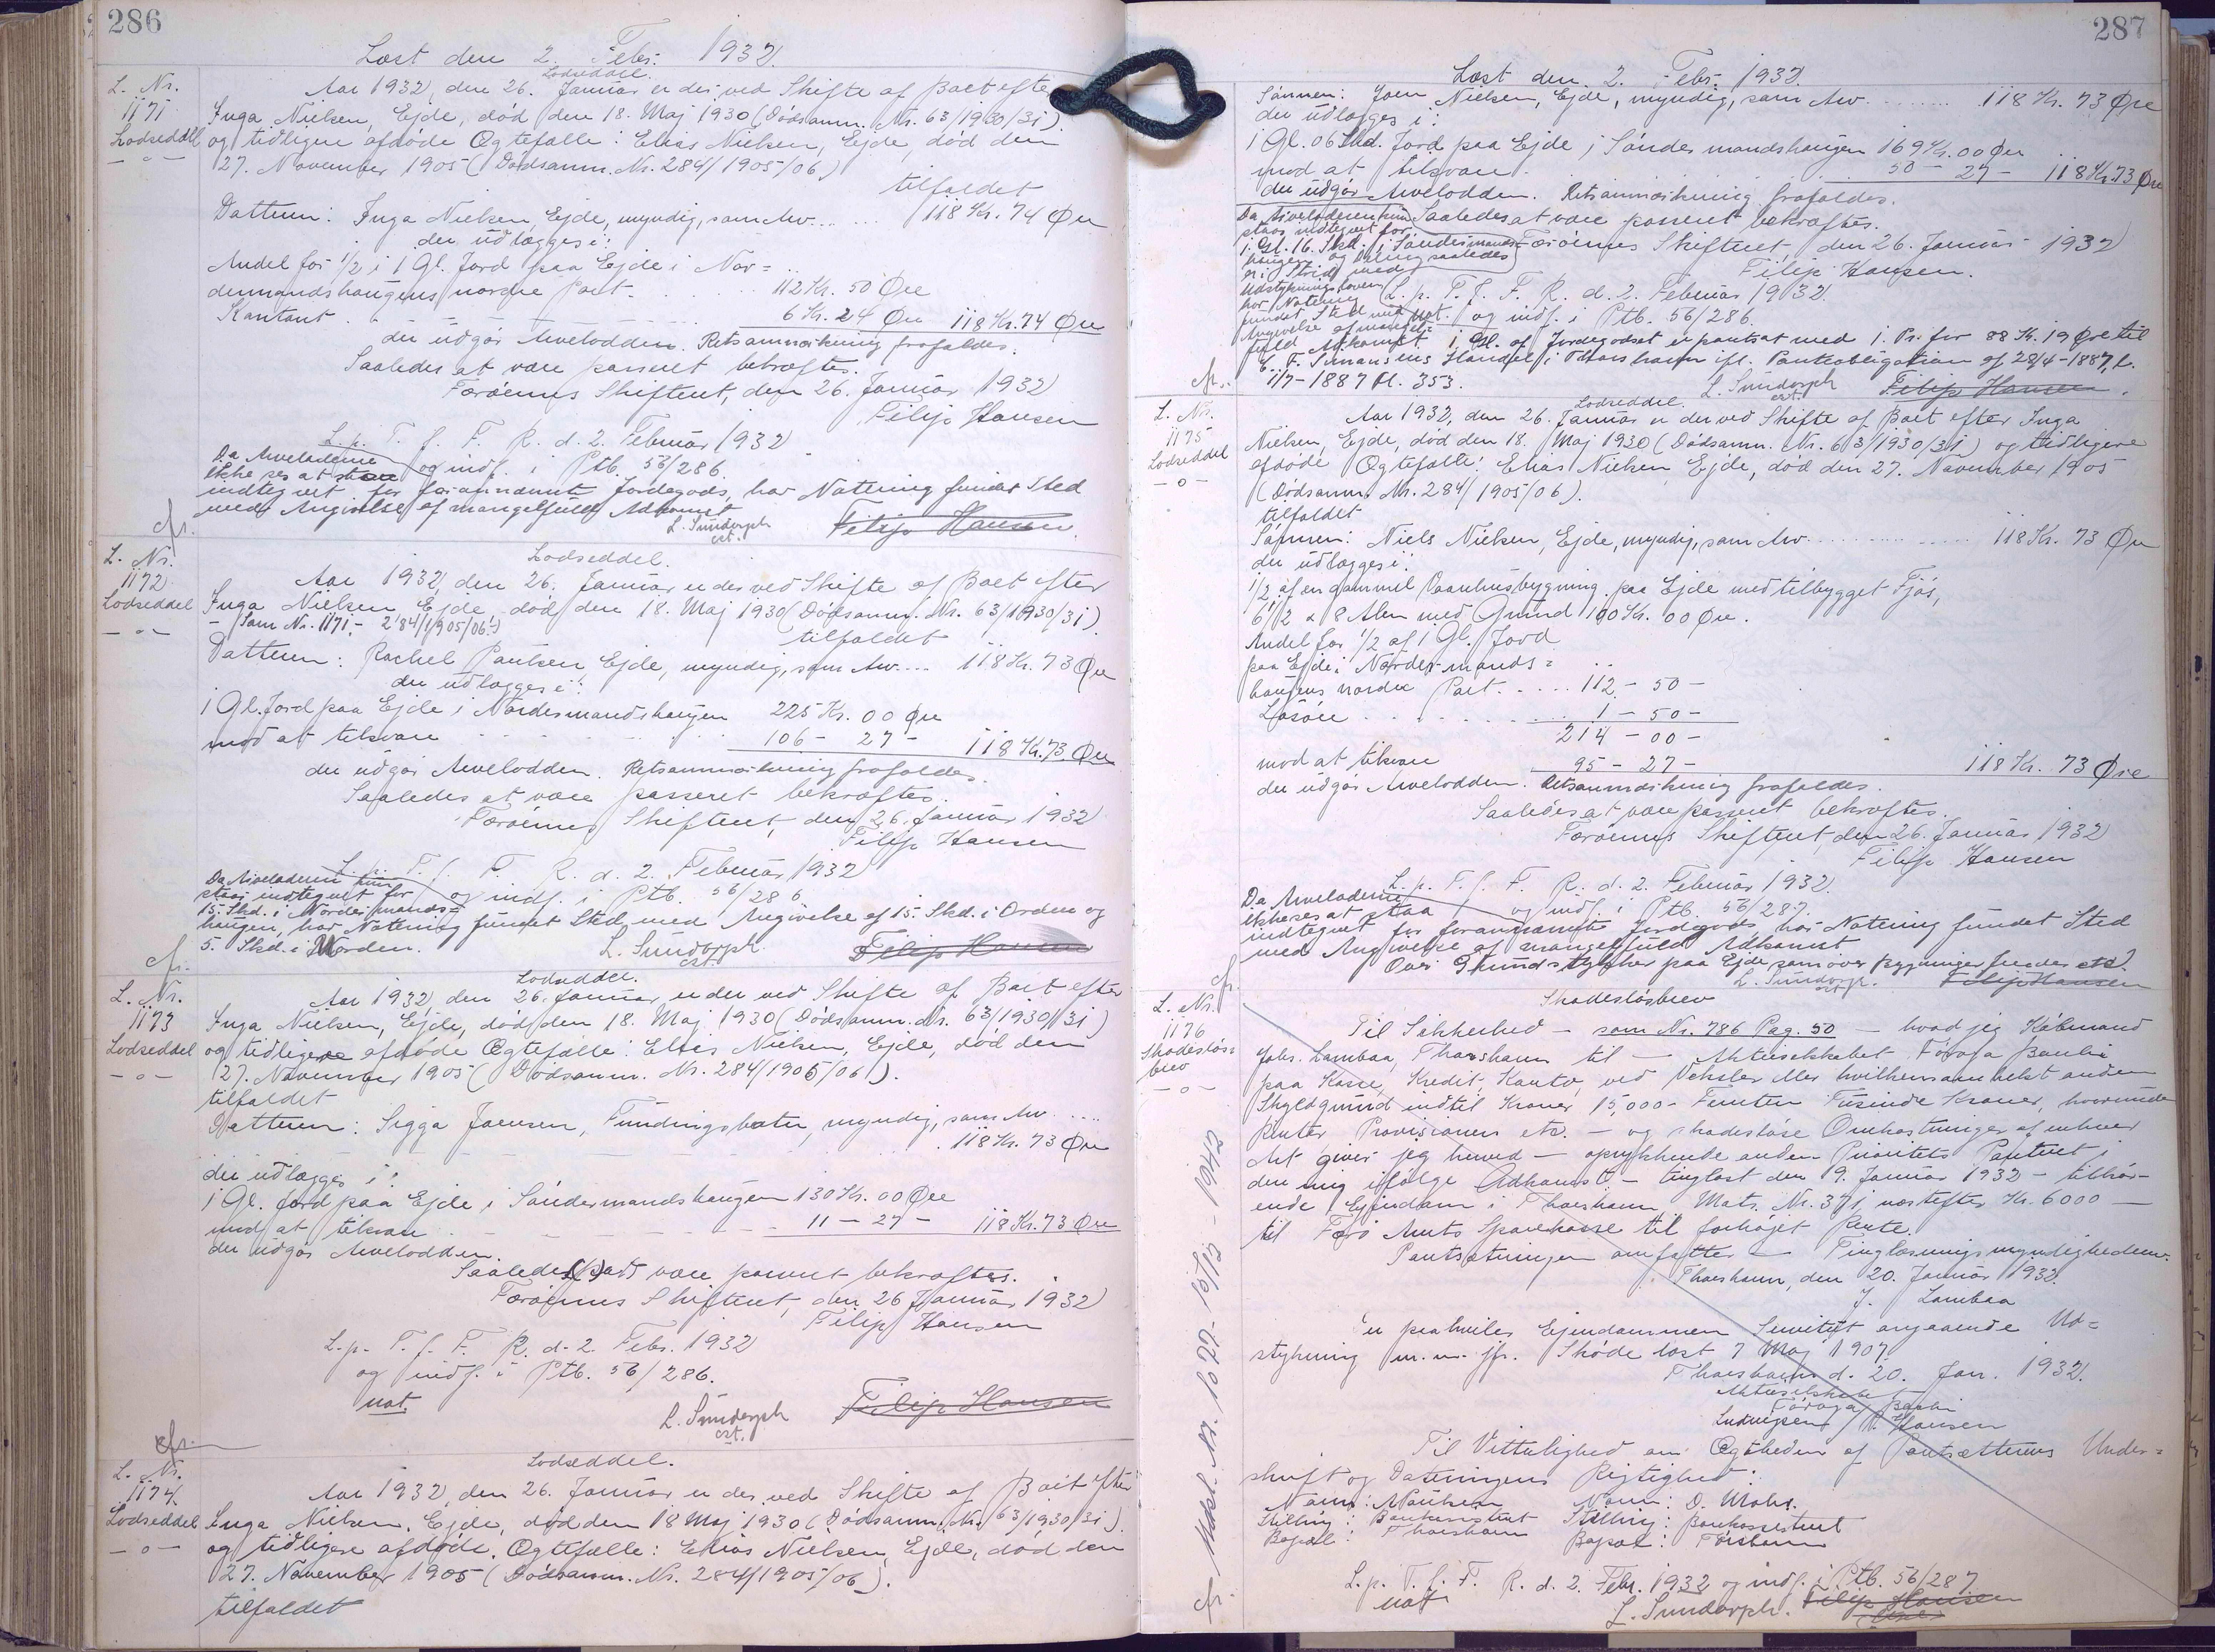 286
Læst den 2. Febr. 1932.
L. Nr.
1171
Lodseddel
— " —
Lodseddel.
Aar 1932, den 26. Januar er der ved Skifte af Boet efter
Inga Nielsen, Ejde, død den 18. Maj 1930 (Dødsanm. Nr. 63/1930/31)
og tidligere afdøde Ægtefælle: Elias Nielsen, Ejde, død den
27. November 1905 (Dødsanm. Nr. 284/1905/06)
tilfaldet
Datteren: Inga Nielsen, Ejde, myndig, som Arv.... 118 Kr. 74 Øre
der udlægges i:
Andel for 1/2 i 1 Gl. Jord paa Ejde i Nor=
dermandshaugens nordre Part. 112 Kr. 50 Øre
Kontant 6 Kr. 24 Øre 118 Kr. 74 Øre
der udgør Arvelodden. Retsanmærkning frafaldes.
Saaledes at være passeret bekræftes.
Færøernes Skifteret, den 26. Januar 1932
Filip Hansen
L. p. T. f. F. R. d. 2. Februar 1932
og indf. i Ptb. 56/286
Da Arveladerne
ikke ses at staa
indtegnet for forannævnte Jordegods, har Notering fundet Sted
med Angivelse af mangelfuld Adkomst
L. Sundorph
cst.
Filip Hansen
cfr.
L. Nr.
1172
Lodseddel
— o —
Lodseddel.
Aar 1932, den 26. Januar er der ved Skifte af Boet efter
Inga Nielsen, Ejde, død den 18. Maj 1930 (Dødsanm. Nr. 63/1930/31)
— (som Nr. 1171. — 284/1905/06.)
tilfaldet
Datteren: Rachel Poulsen, Ejde, myndig, som Arv.... 118 Kr. 73 Øre
der udlægges i:
1 Gl. Jord paa Ejde i Nordermandshaugen 225 Kr. 00 Øre
mod at tilsvare 106 — 27 — 118 Kr. 73 Øre
der udgør Arvelodden. Retsanmærkning frafaldes.
Saaledes at være passeret bekræftes.
Færøernes Skifteret, den 26. Januar 1932
Filip Hansen
L. p. T. f. F. R. d. 2. Februar 1932
og indf. i Ptb. 56/286
Da Arveladeren kun
staar indtegnet for
15. Skd. i Nordermands=
haugen, har Notering fundet Sted med Angivelse af 15. Skd. i Orden og
5. Skd. i Uorden.
L. Sundorph.
cst.
Filip Hansen
cfr.
L. Nr.
1173
Lodseddel
— o —
Lodseddel.
Aar 1932, den 26. Januar er der ved Skifte af Boet efter
Inga Nielsen, Ejde, død den 18. Maj 1930 (Dødsanm. Nr. 63/1930/31)
og tidligere afdøde Ægtefælle: Elias Nielsen, Ejde, død den
27. November 1905 (Dødsanm. Nr. 284/1905/06).
tilfaldet
Datteren: Sigga Joensen, Funningsbotn, myndig, som Arv ....
118 Kr. 73 Øre
der udlægges i:
1 Gl. Jord paa Ejde i Søndermandshaugen 130 Kr. 00 Øre
mod at tilsvare 11 — 27 — 118 Kr. 73 Øre
der udgør Arvelodden.
Saaledes at være passeret bekræftes.
Færøernes Skifteret, den 26 Januar 1932
Filip Hansen
L. p. T. f. F. R. d. 2 Febr. 1932
og indf. i Ptb. 56/286.
not.
L. Sundorph
cst.
Filip Hansen
cfr.
L. Nr.
1174.
Lodseddel
— o —
Lodseddel.
Aar 1932, den 26. Januar er der ved Skifte af Boet efter
Inga Nielsen, Ejde, død den 18 Maj 1930 (Dødsanm. Nr. 63/1930/31).
og tidligere afdøde Ægtefælle: Elias Nielsen, Ejde, død den
27. November 1905 (Dødsanm. Nr. 284/1905/06).
tilfaldet
287
Læst den 2. Febr. 1932
Sønnen: Joen Nielsen, Ejde, myndig, som Arv ........ 118 Kr. 73 Øre
der udlægges i:
1 Gl. 06 Skd. Jord paa Ejde i Søndermandshaugen 169 Kr. 00 Øre
mod at tilsvare 50 — 27 — 118 Kr. 73 Øre
der udgør Arvelodden. Retsanmærkning frafaldes.
Saaledes at være passeret bekræftes.
Færøernes Skifteret, den 26. Januar 1932
Filip Hansen.
Da Arveladeren kun
staar indtegnet for
1 Gl. 16. Skd. i Søndermands=
haugen og Deling saaledes
er i Strid med
Udstykningsloven
har Notering
fundet Sted med
Angivelse af mangel=
fuld Adkomst
L. p. T. f. F. R. d. 2. Februar 1932.
not. og indf. i Ptb. 56/286.
1 Gl. af Jordegodset er pantsat med 1. Pr. for 88 Kr. 19 Øre til
E. F. Simonsens Handel i Thorshavn ifl. Pantobligation af 28/4-1887, l.
1/7-1887 Fl. 353.
L. Sundorph
cst.
Filip Hansen
cfr.
L. Nr.
1175
Lodseddel
— o —
Lodseddel.
Aar 1932, den 26. Januar er der ved Skifte af Boet efter Inga
Nielsen, Ejde, død den 18. Maj 1930 (Dødsanm. Nr. 63/1930/31) og tidligere
afdøde Ægtefælle: Elias Nielsen, Ejde, død den 27. November 1905
(Dødsanm. Nr. 284/1905/06).
tilfaldet
Sønnen: Niels Nielsen, Ejde, myndig, som Arv ........ 118 Kr. 73 Øre
der udlægges i:
1/2 af en gammel Vaanhusbygning paa Ejde med tilbygget Fjøs,
6 1/2 x 8 Alen med Grund 100 Kr. 00 Øre.
Andel for 1/2 af 1 Gl. Jord
paa Ejde i Nordermands=
haugens nordre Part. .... 112 — 50 —
Løsøre ........ 1 — 50 —
214 — 00 —
mod at tilsvare 95 — 27 — 118 Kr. 73 Øre
der udgør Arvelodden. Retsanmærkning frafaldes.
Saaledes at være passeret bekræftes.
Færøernes Skifteret, den 26. Januar 1932
Filip Hansen
L. p. T. f. F. R. d. 2. Februar 1932.
og indf. i Ptb. 56/287.
Da Arveladerne
ikke ses at staa
indtegnet for forannævnte Jordegods, har Notering fundet Sted
med Angivelse af mangelfuld Adkomst
Over Grundstykker paa Ejde, som over Bygninger
L. Sundorph.
cst.
Filip Hansen
cfr.
L. Nr.
1176
Skadesløs=
brev
— o —
Skadesløsbrev
Til Sikkerhed — som Nr. 786 Pag. 50 — hvad jeg Købmand
Johs. Lambaa, Thorshavn til — Aktieselskabet Føroya Banki
paa Kasse, Kredit, Konto, ved Veksler eller hvilkensomhelst anden
Skyldgrund indtil Kroner 15,000- Femten Tusinde Kroner, hvorunder
Renter Provisioner etc. — og skadesløse Omkostninger af enhver
Art giver jeg herved — oprykkende anden Prioritets Panteret i
den mig ifølge Adkomst — tinglæst den 9. Januar 1932 — tilhør-
ende Ejendom i Thorshavn, Matr. Nr. 37j næstefter Kr. 6000 —
til Færø Amts Sparekasse til forhøjet Rente.
Pantsætningen omfatter — Tinglæsningsmyndighederne.
Thorshavn, den 20. Januar 1932.
J. Lambaa
er paahviler Ejendommen Servitut angaaende Ud=
stykning m.m. jfr. Skøde læst 7 Maj 1907.
Thorshavn d. 20. Jan. 1932.
Aktieselskabet
Føroya Banki
Ludvigsen / P. Hansen
Til Vitterlighed om Ægtheden af Pantsætterens Under=
skrift og Dateringens Rigtighed:
Navn: NPoulsen Navn: D. Mohr.
Stilling: Bankassistent Stilling: Bankassistent
Bopæl: Thorshavn Bopæl: Tórshavn
L. p. T. f. F. R. d. 2. Febr. 1932 og indf. i Ptb. 56/287
not
L. Sundorph. Filip Hansen
cfr. Nr. 1022- 16/12 - 1942